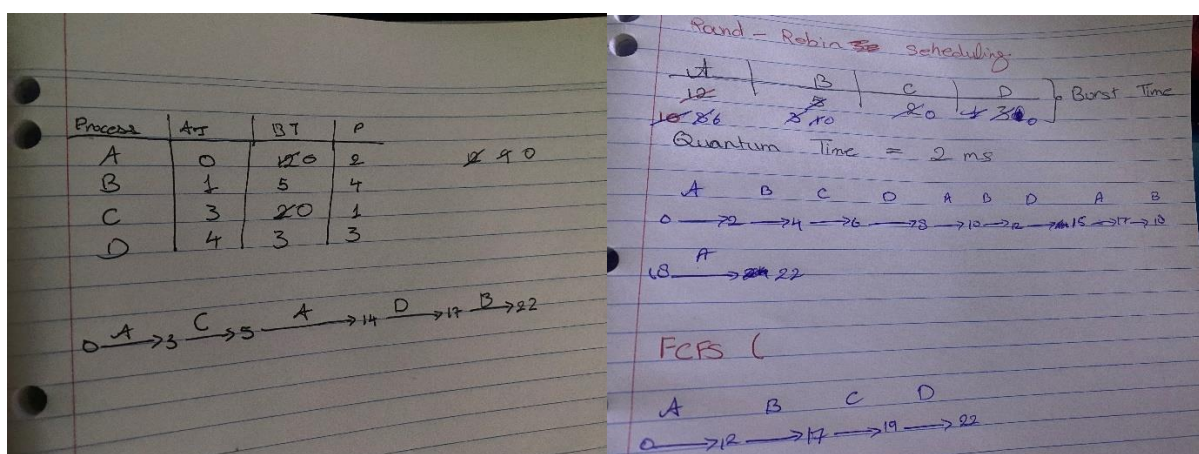 Process Arr BT P
A 0 12 0 2
B 1 5 4
C 3 2 0 1
D 4 3 3
12 9 0
0 A → 3 C → 5 A → 14 D → 17 B → 22
Round - Robin scheduling
A B C D Burst Time
12 5 2 0 3 1 0
10 8 6 3 1 0
Quantum Time = 2 ms
A B C D A B D A B
0 → 2 → 4 → 6 → 8 → 10 → 12 → 15 → 17 → 18
A
18 → 22
FCFS (
A B C D
0 → 12 → 17 → 19 → 22